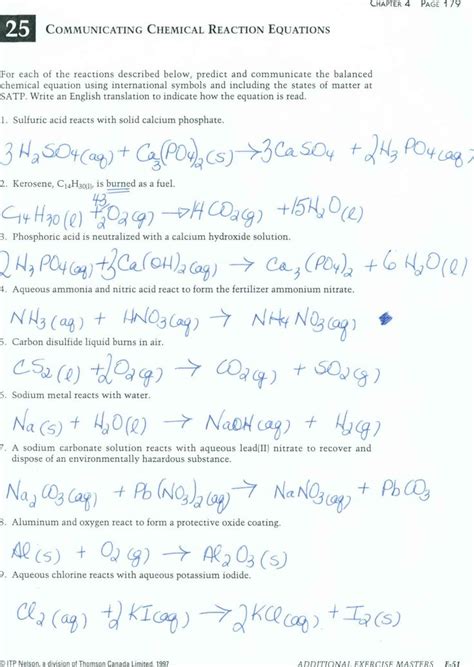 CHAPTER 4 PAGE 179
25 COMMUNICATING CHEMICAL REACTION EQUATIONS
For each of the reactions described below, predict and communicate the balanced
chemical equation using international symbols and including the states of matter at
SATP. Write an English translation to indicate how the equation is read.
1. Sulfuric acid reacts with solid calcium phosphate.
3 H2SO4(aq) + Ca3(PO4)2(s) → 3 CaSO4 + 2 H3PO4(aq)
2. Kerosene, C14H30(l), is burned as a fuel.
C14H30(l) + 43/2 O2(g) → 14 CO2(g) + 15 H2O(l)
3. Phosphoric acid is neutralized with a calcium hydroxide solution.
2 H3PO4(aq) + 3 Ca(OH)2(aq) → Ca3(PO4)2 + 6 H2O(l)
4. Aqueous ammonia and nitric acid react to form the fertilizer ammonium nitrate.
NH3(aq) + HNO3(aq) → NH4NO3(aq)
5. Carbon disulfide liquid burns in air.
CS2(l) + 2 O2(g) → CO2(g) + SO2(g)
6. Sodium metal reacts with water.
Na(s) + H2O(l) → NaOH(aq) + H2(g)
7. A sodium carbonate solution reacts with aqueous lead(II) nitrate to recover and
dispose of an environmentally hazardous substance.
Na2CO3(aq) + Pb(NO3)2(aq) → NaNO3(aq) + PbCO3
8. Aluminum and oxygen react to form a protective oxide coating.
Al(s) + O2(g) → Al2O3(s)
9. Aqueous chlorine reacts with aqueous potassium iodide.
Cl2(aq) + 2 KI(aq) → 2 KCl(aq) + I2(s)
© ITP Nelson, a division of Thomson Canada Limited, 1997 ADDITIONAL EXERCISE MASTERS E-51